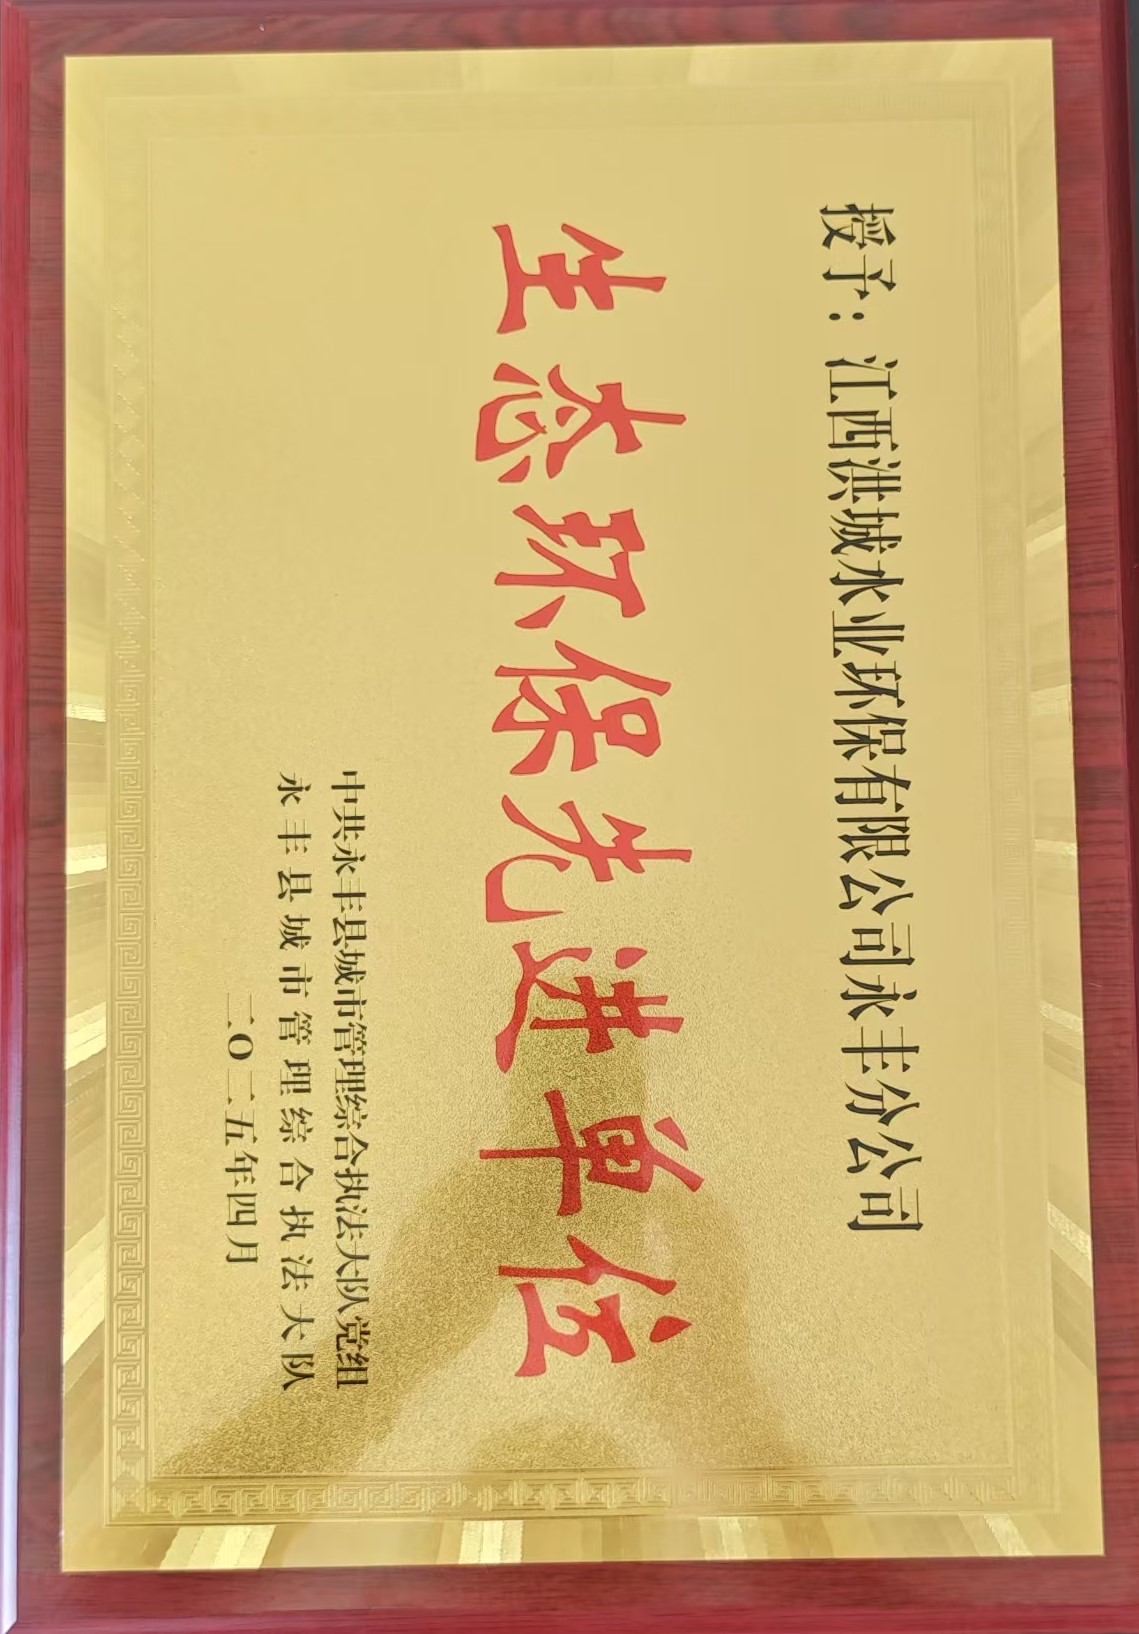 授予：江西洪城水业环保有限公司永丰分公司
生态环保先进单位
中共永丰县城市管理综合执法大队党组
永丰县城市管理综合执法大队
二〇二五年四月